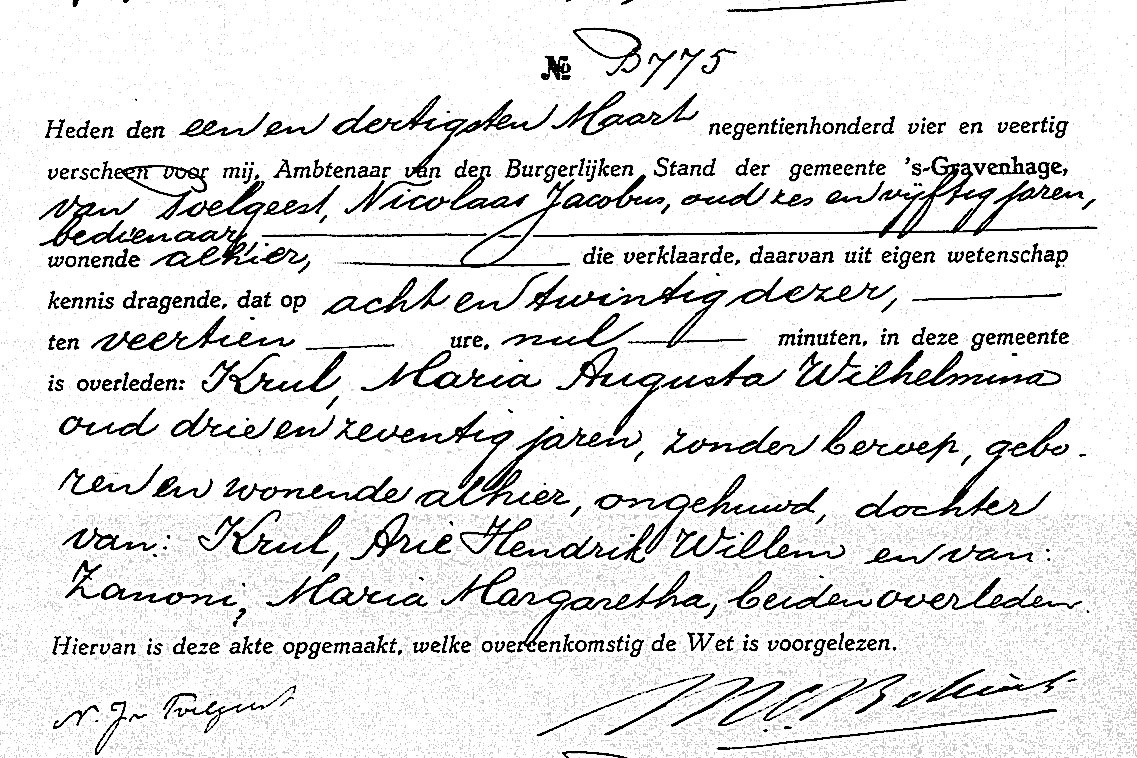 № B775
Heden den een en dertigsten Maart negentienhonderd vier en veertig
verscheen voor mij, Ambtenaar van den Burgerlijken Stand der gemeente 's-Gravenhage,
van Toelgeest, Nicolaas Jacobus, oud zes en vijftig jaren,
bedienaar,
wonende alhier, die verklaarde, daarvan uit eigen wetenschap
kennis dragende, dat op acht en twintig dezer,
ten veertien ure, nul minuten, in deze gemeente
is overleden: Krul, Maria Augusta Wilhelmina
oud drie en zeventig jaren, zonder beroep, gebo-
ren en wonende alhier, ongehuwd, dochter
van: Krul, Arie Hendrik Willem en van:
Zanoni, Maria Margaretha, beiden overleden.
Hiervan is deze akte opgemaakt, welke overeenkomstig de Wet is voorgelezen.
N. J. v Toelgeest